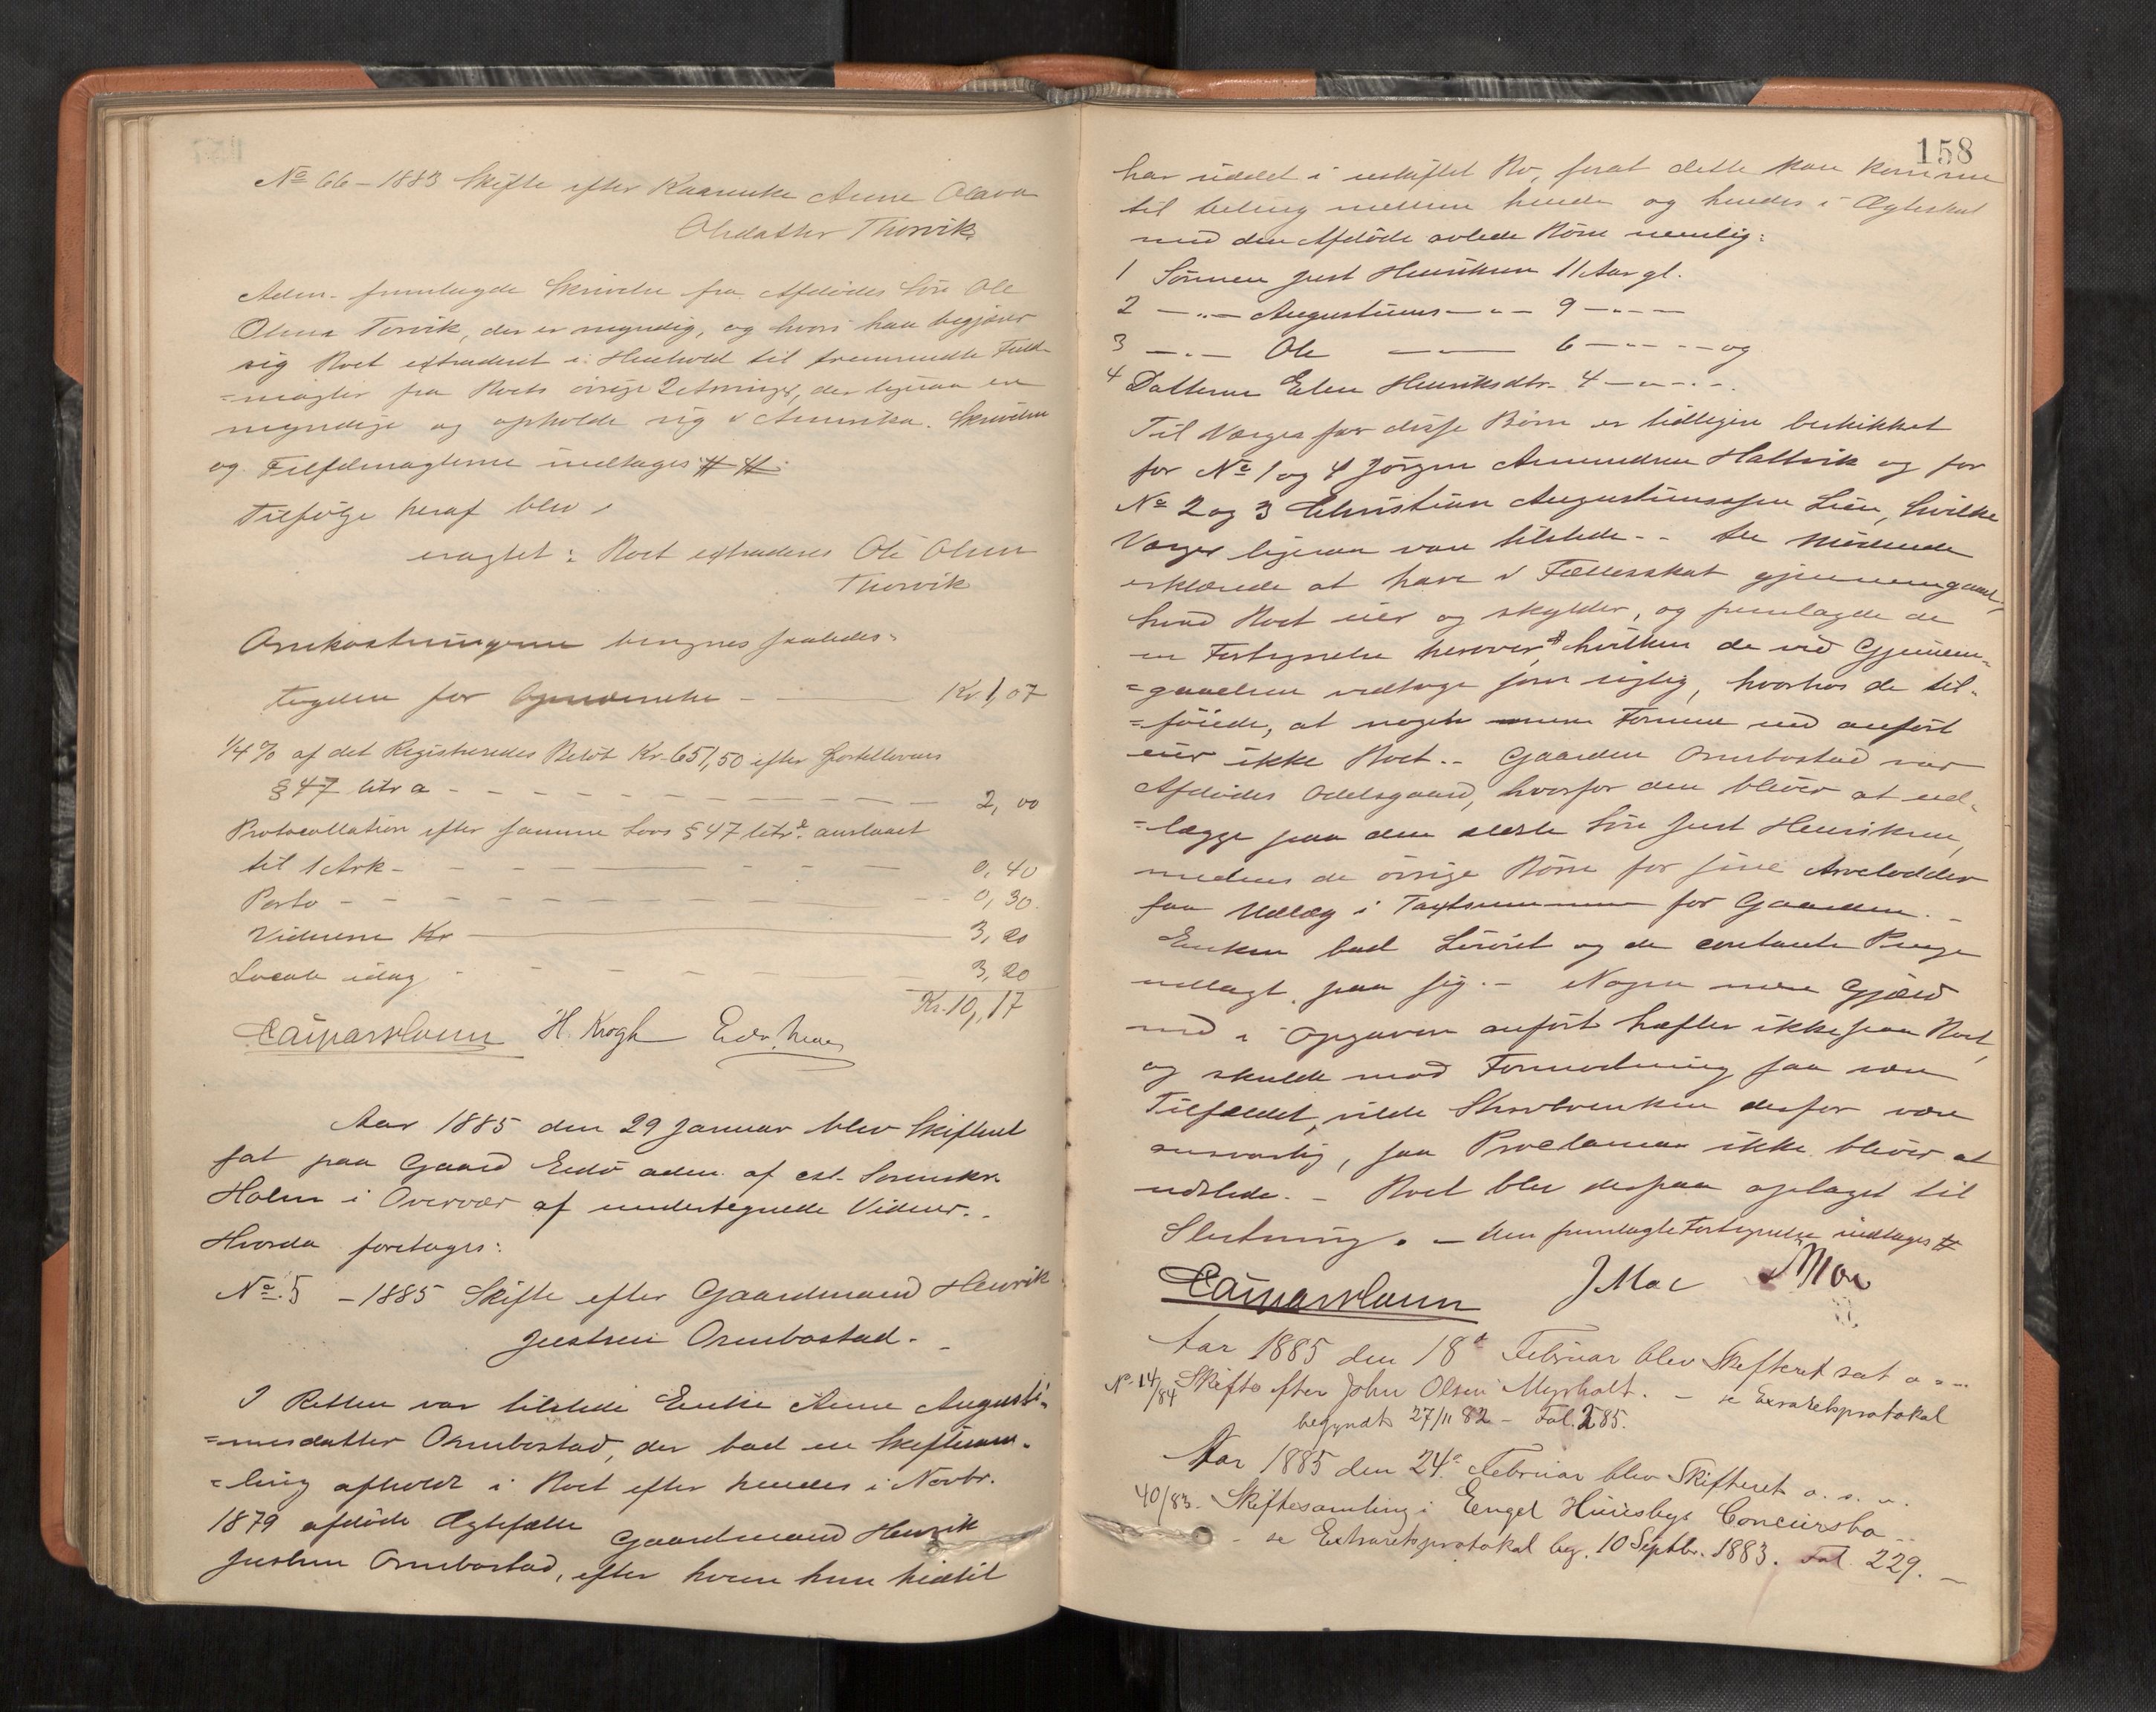 No 66 - 1883 Skifte efter Kaarenke Anne Olava
Olsdatter Thorvik.
Adm. fremlagde Skrivelse fra Afdødes Søn Ole
Olsen Torvik, der er myndig, og hvori han begjærer
sig Boet extraderet i Henhold til fremsendte Fuld-
=magter fra Boets øvrige Lodtninger, der ligesaa er
myndige og opholde sig i Amerika. Skrivelsen
og Fuldmagterne indtages # #.
Tilfølge heraf blev
eragtet: Boet extraderes Ole Olsen
Thorvik
Omkostningerne beregnes saaledes:
Kr. 1,07
1/4 % af det Registreredes Beløb Kr. 651,50 efter Sportellovens
§ 47 litr a - 2,00
Protocollation efter samme Lovs § 47 litr. anslaaet
til 1 Ark - 0,40
Porto - 0,30
Vidnerne Kr 3,20
Locale idag - 3,20
Kr. 10,17
H. Krogh Edv.
Aar 1885 den 29 Januar blev Skifteret
sat paa Gaard Eidø adm. af cst. Sorenskr.
Holm i Overvær af undertegnede Vidner.
Hvorda foretages:
No. 5 - 1885 Skifte efter Gaardmand Henrik
Justsen Ormbostad.
I Retten var tilstede Enke Anne Augusti-
=nusdatter Ormbostad, der bad en Skiftesam-
=ling afholdt i Boet efter hendes i Novbr.
1879 afdøde Ægtefælle Gaardmand Henrik
Justsen Ormbostad, efter hvem hun hidtil
158
har siddet i uskiftet Bo, forat dette kan komme
til Deling mellem hende og hendes i Ægteskab
med den Afdøde avlede Børn nemlig:
1 Sønnen Just Henriksen 11 Aar gl.
2 - " - Augustinus - " - 9 - " -
3 - " - Ole - 6 - " - og
4 Datteren Elen Henriksdtr. 4 - " -
Til Værger for disse Børn er tidligere beskikket
for No 1 og 4 Jørgen Amundsen Haltvik og for
No 2 og 3 Christian Augustinussen Lien, hvilke
Værger ligesaa var tilstede. - De Mødende
erklærede at have i Fællesskab gjennemgaaet,
hvad Boet eier og skylder, og fremlagde de
en Fortegnelse herover #, hvilken de ved Gjennem-
=gaaelsen vedtoge som rigtig, hvorhos de til-
=føiede, at nogen mere Formue end anført
eier ikke Boet. - Gaarden Ormbostad var
Afdødes Odelsgaard, hvorfor den bliver at ud-
=lægge paa den ældste Søn Just Henriksen,
medens de øvrige Børn for sine Arvelodder
faa Udlæg i Taxtsummen for Gaarden. -
Enken bad Løsøret og de contante Penge
udlagt paa sig. - Nogen mere Gjæld
end i Opgaven anført hæfter ikke paa Boet,
og skulde mod Formodning saa være
Tilfældet, vilde Skravlenken derfor være
ansvarlig, saa Proclama ikke bliver at
udstede. - Boet blev derpaa optaget til
Slutning. - den fremlagte Fortegnelse indtages #
J Moe Moe
Aar 1885 den 18de Februar blev Skifteret sat o. s. v.
No. 14/84 Skifte efter John Olsen Myrholt. - se Extraretsprotokol
begyndt 27/11 82 - Fol. 285.
Aar 1885 den 24de Februar blev Skifteret o. s. v.
40/83. Skiftesamling i Engel Huusbys Concursbo
- se Extraretsprotokol beg. 10 Septbr. 1883. Fol. 229. -